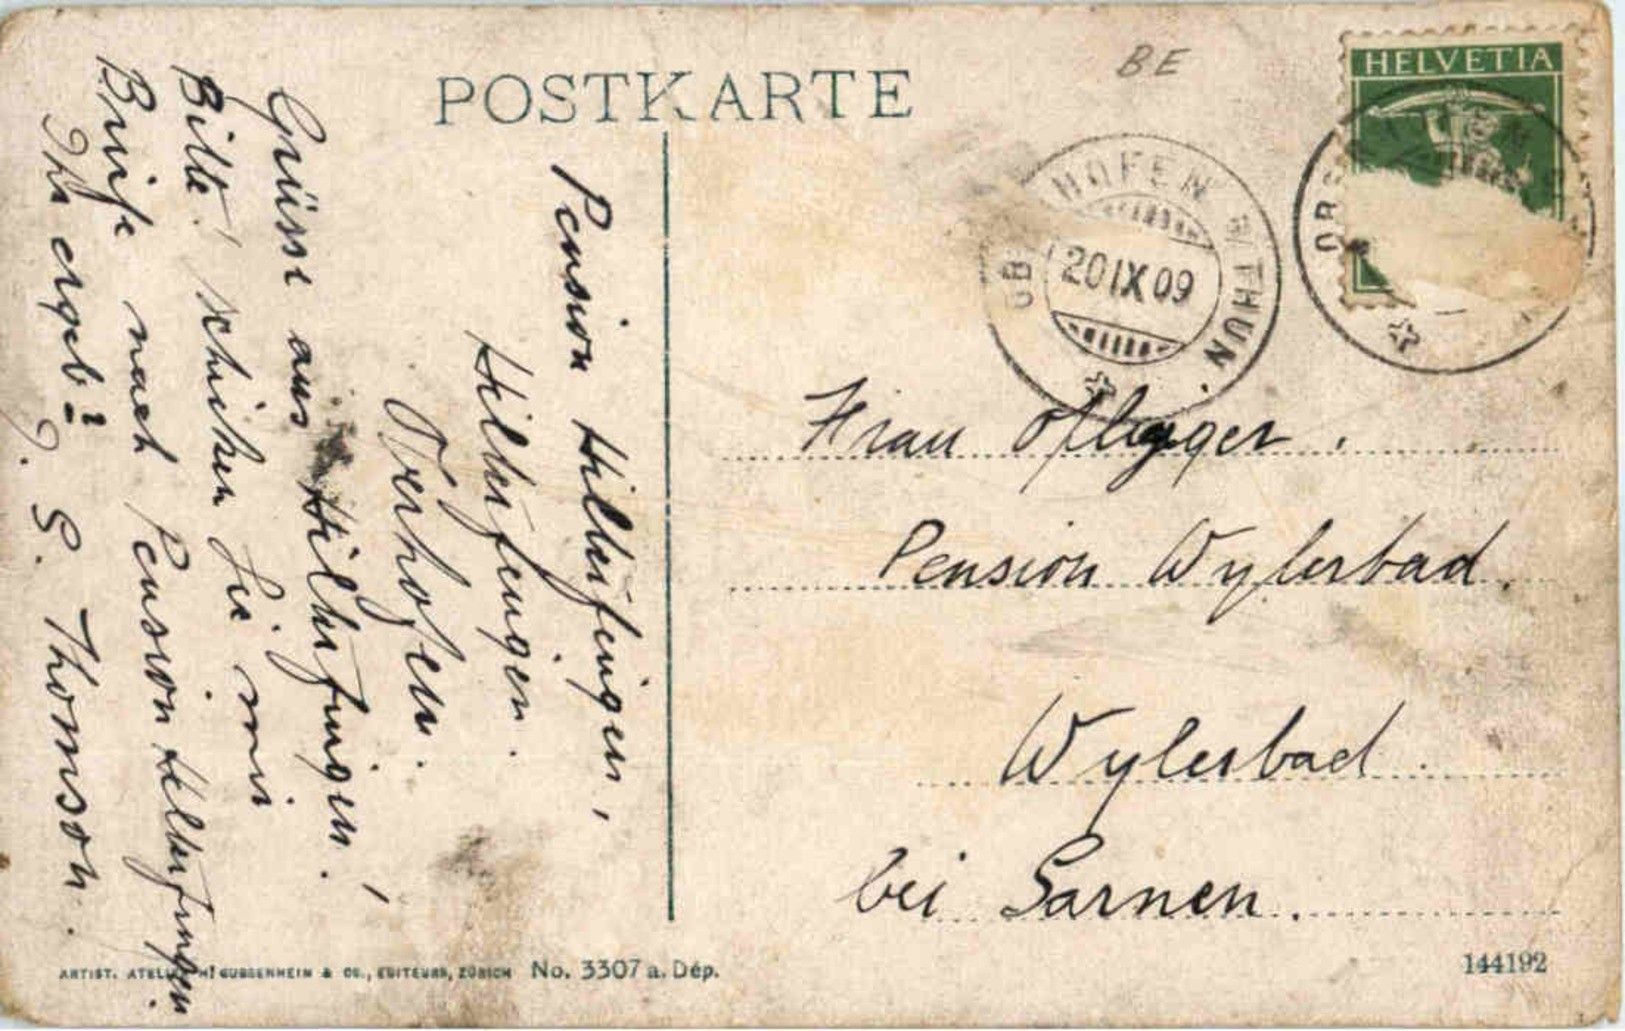 POSTKARTE
BE
HELVETIA
HOFEN THUN
20 IX 09
Pension Hilterfingen,
Hilterfingen.
Örhofen.
Grüsse aus Hilterfingen.
Bitte! schicken Sie mir
Briefe nach Pension Hilterfingen.
Ihr ergeb
J. S. Thomson.
Frau Ofliger.
Pension Wylerbad.
Wylerbad.
bei Sarnen.
ARTIST. ATELIER H. GUGGENHEIM & CO., EDITEURS, ZÜRICH No. 3307 a. Dép.
144192